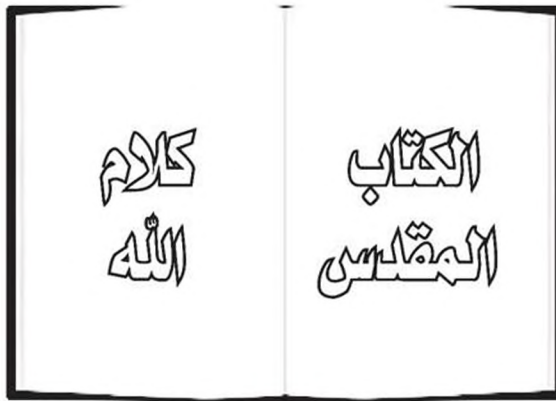 الكتاب
المقدس
كلام
الله